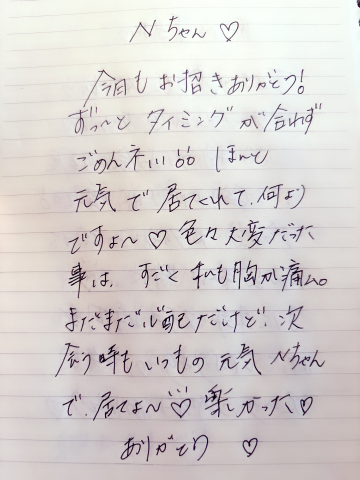 Nちゃん♡
今日もお招きありがとう!
ずっ〜と タイミングが合わず
ごめんネ!!! ほんと
元気で居てくれて、何より
ですよ〜♡ 色々大変だった
事は、すごく私も胸が痛ム。
まだまだ心配だけど、次
会う時もいつもの元気Nちゃん
で、居てよ〜♡ 楽しかった♡
ありがとう ♡